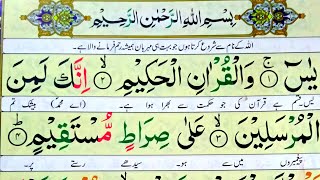 بِسْمِ اللهِ الرَّحْمٰنِ الرَّحِيْمِ
اللہ کے نام سے شروع کرتا ہوں جو بہت ہی مہربان ہمیشہ رحم فرمانے والا ہے۔
يٰسٓ ۝١ وَالْقُرْاٰنِ الْحَكِيْمِ ۝٢ اِنَّكَ لَمِنَ
یٰسٓ۔ قسم ہے قرآن کی جو حکمت سے بھرا ہوا ہے۔ (اے محمدؐ) بیشک تم
الْمُرْسَلِيْنَ ۝٣ عَلٰى صِرَاطٍ مُّسْتَقِيْمٍ ۝٤
پیغمبروں میں سے ہو۔ سیدھے رستے پر۔